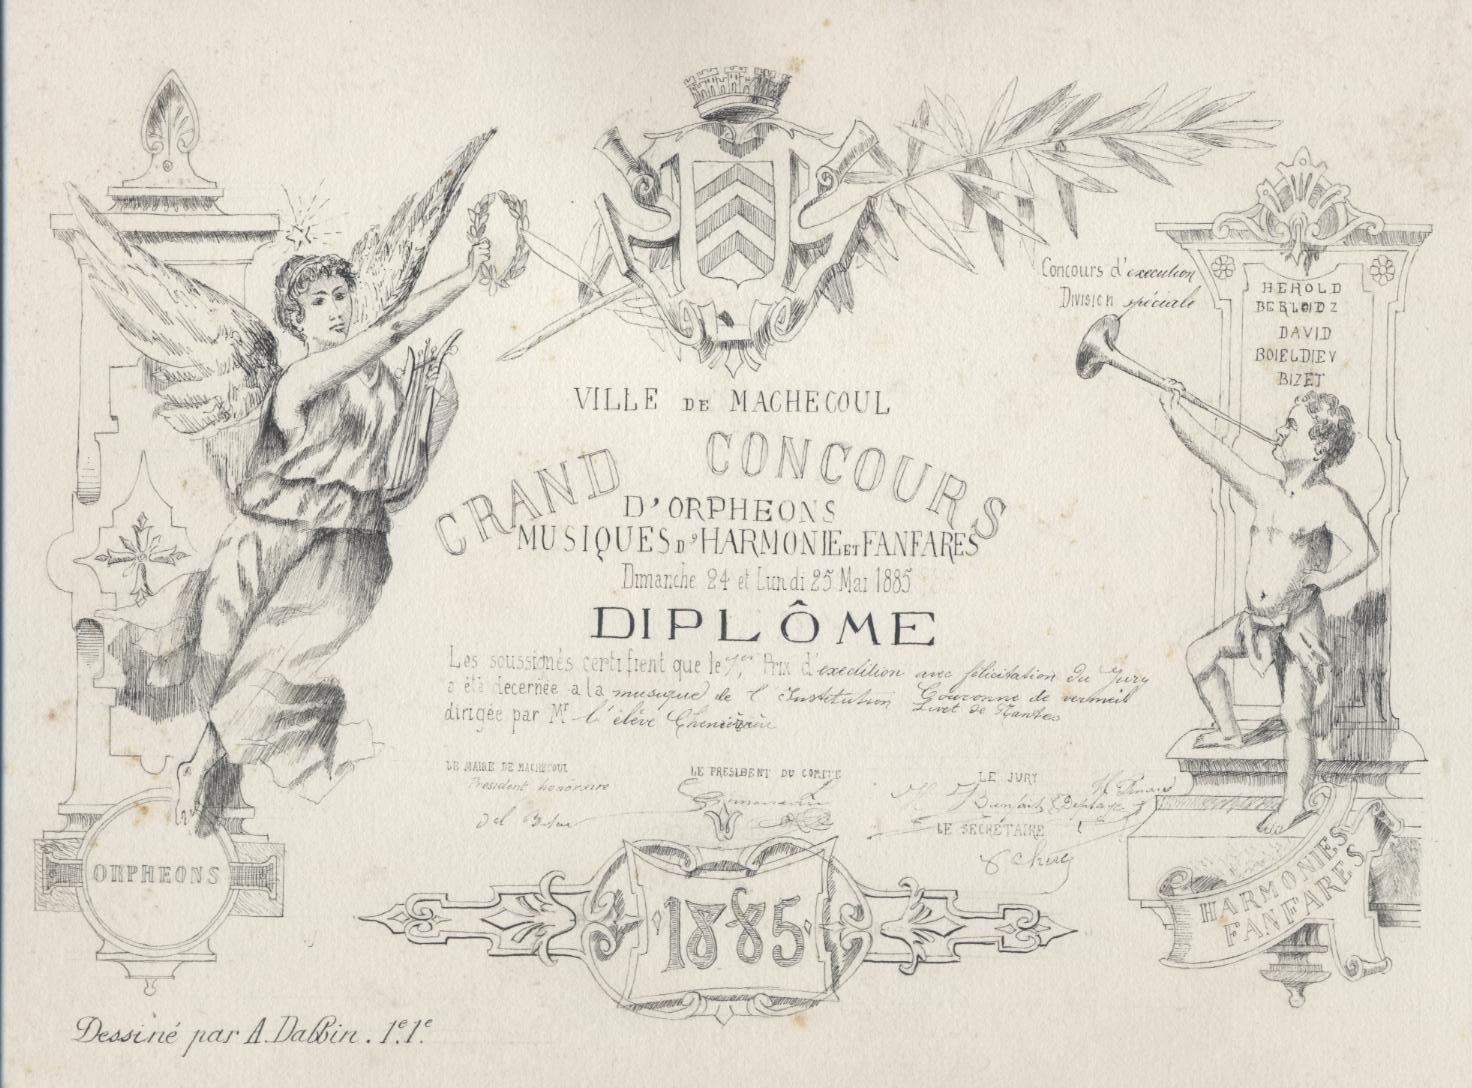 Concours d'execution
Division spéciale
HEROLD
BERLOIDZ
DAVID
BOIELDIEV
BIZET
VILLE DE MACHECOUL
GRAND CONCOURS
D'ORPHEONS
MUSIQUES D'HARMONIE ET FANFARES
Dimanche 24 et Lundi 25 Mai 1885
DIPLÔME
Les soussignés certifient que le 1er, Prix d'execution avec félicitation du Jury
a été decernée a la musique de l'Institution Livet de Nantes Couronne de vermeil
dirigée par Mr l'élève
LE MAIRE DE MACHECOUL
Président honoraire
LE PRESIDENT DU COMITE
LE JURY
LE SECRÉTAIRE
ORPHEONS
1885
HARMONIES
FANFARES
Dessiné par A. Dabbin. 1e. 1e.